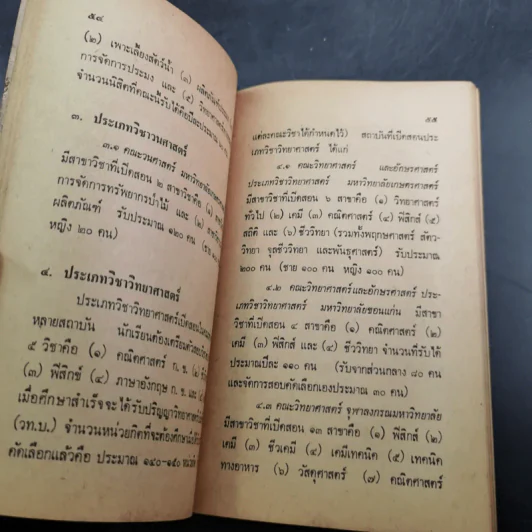 ๕๔
(๒) เพาะเลี้ยงสัตว์น้ำ (๓) ผลิตภัณฑ์
การจัดการประมง และ (๕) วิทยาศาสตร์
จำนวนนิสิตที่คณะนี้รับได้คือปีละประมาณ
๓. ประเภทวิชาวนศาสตร์
๓.๑ คณะวนศาสตร์ มหาวิทยาลัย
มีสาขาวิชาที่เปิดสอน ๒ สาขาวิชาคือ (๑)
การจัดการทรัพยากรป่าไม้ และ (๒)
ผลิตภัณฑ์ รับประมาณ ๑๒๐ คน (ชาย
หญิง ๒๐ คน)
๔. ประเภทวิชาวิทยาศาสตร์
ประเภทวิชาวิทยาศาสตร์เปิดสอน
หลายสถาบัน นักเรียนต้องเตรียมตัวสอบ
๕ วิชาคือ (๑) คณิตศาสตร์ ก. ข. (๒)
(๓) ฟิสิกซ์ (๔) ภาษาอังกฤษ ก. ข. และ
เมื่อศึกษาสำเร็จจะได้รับปริญญาวิทยา
(วท.บ.) จำนวนหน่วยกิตที่จะต้องศึกษา
คัดเลือกแล้วคือ ประมาณ ๑๔๐-๑๕๐
๕๕
แต่ละคณะวิชาได้กำหนดไว้) สถาบันที่เปิดสอนประ
เภทวิชาวิทยาศาสตร์ ได้แก่
๔.๑ คณะวิทยาศาสตร์ และอักษรศาสตร์
ประเภทวิชาวิทยาศาสตร์ มหาวิทยาลัยเกษตรศาสตร์
มีสาขาวิชาที่เปิดสอน ๖ สาขาคือ (๑) วิทยาศาสตร์
ทั่วไป (๒) เคมี (๓) คณิตศาสตร์ (๔) ฟิสิกส์ (๕)
สถิติ และ (๖) ชีววิทยา (รวมทั้งพฤกษศาสตร์ สัตว-
วิทยา จุลชีววิทยา และพันธุศาสตร์) รับประมาณ
๒๐๐ คน (ชาย ๑๐๐ คน หญิง ๑๐๐ คน)
๔.๒ คณะวิทยาศาสตร์และอักษรศาสตร์ ประ-
เภทวิชาวิทยาศาสตร์ มหาวิทยาลัยขอนแก่น มีสาขา
วิชาที่เปิดสอน ๔ สาขาคือ (๑) คณิตศาสตร์ (๒)
เคมี (๓) ฟิสิกส์ และ (๔) ชีววิทยา จำนวนที่รับได้
ประมาณปีละ ๑๑๐ คน (รับจากส่วนกลาง ๘๐ คน
และจัดการสอบคัดเลือกเองประมาณ ๓๐ คน)
๔.๓ คณะวิทยาศาสตร์ จุฬาลงกรณมหาวิทยาลัย
มีสาขาวิชาที่เปิดสอน ๑๓ สาขาคือ (๑) ฟิสิกส์ (๒)
เคมี (๓) ชีวเคมี (๔) เคมีเทคนิค (๕) เทคนิค
ทางอาหาร (๖) วัสดุศาสตร์ (๗) คณิตศาสตร์